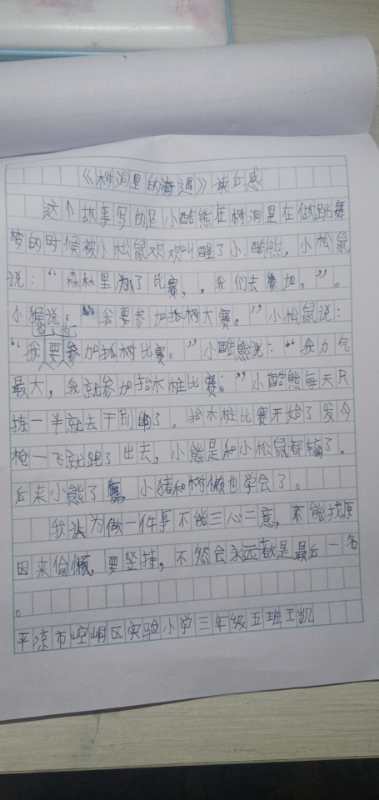 《树洞里的奇遇》读后感
这个故事写的是小酷熊在树洞里在做跳舞
梦的时候被小松鼠欢欢叫醒了小酷熊，小松鼠
说：“森林里为了比赛，，我们去参加。”。
小猴说：“我要参加拔树大赛。”小松鼠说：
“我要参加拔树比赛。”小酷熊说：“我力气
最大，我就参加抬木桩比赛。”小酷熊每天只
练一半就去干别的了。抬木桩比赛开始了发令
枪一飞就跑了出去，小熊是和小松鼠都输了。
后来小熊了，小猪和树懒也学会了。
我认为做一件事不能三心二意，不能找原
因来偷懒，要坚持，不然会永远都是最后一名
。
平凉市崆峒区实验小学三年级五班王凯